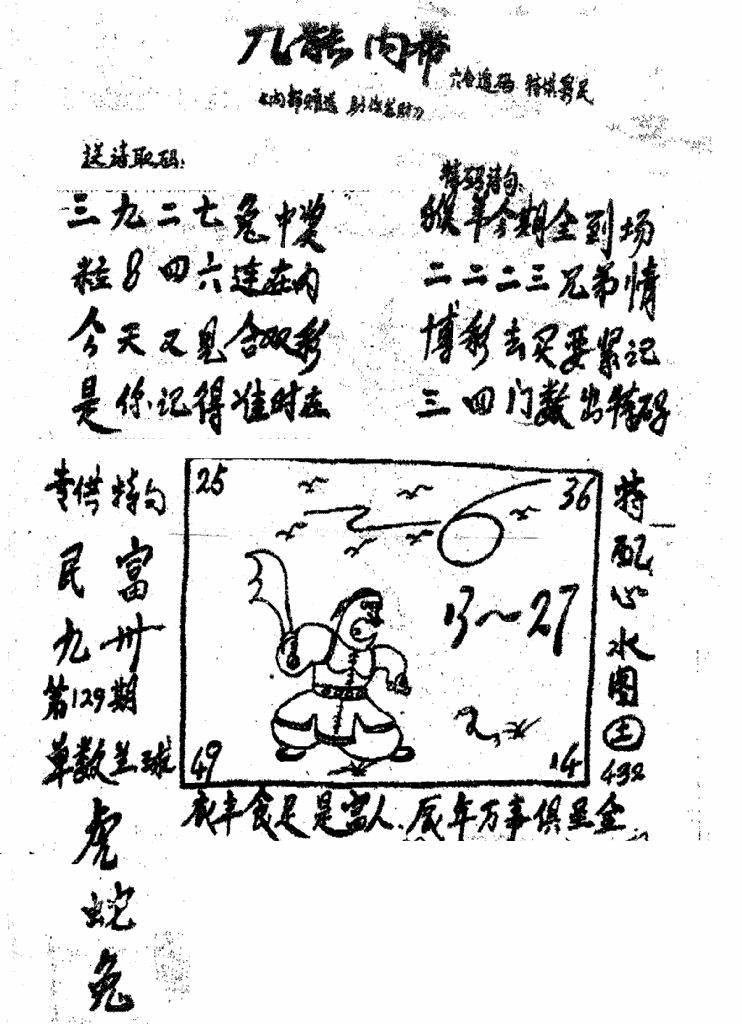 九龍内幕
六合透码
送诗取码:
特码诗句:
三九二七兔中奖
粒8四六连在内
今天又见合双彩
是你记得准时在
猴羊今期全到场
二二二三兄弟情
博彩去买要紧记
三四门数出特码
专供特句
富民
卅九
第129期
单数兰球
虎
蛇
兔
25
36
13~27
2,
49
14
特配心水图
土
432
衣丰食足是富人.辰年万事俱呈金